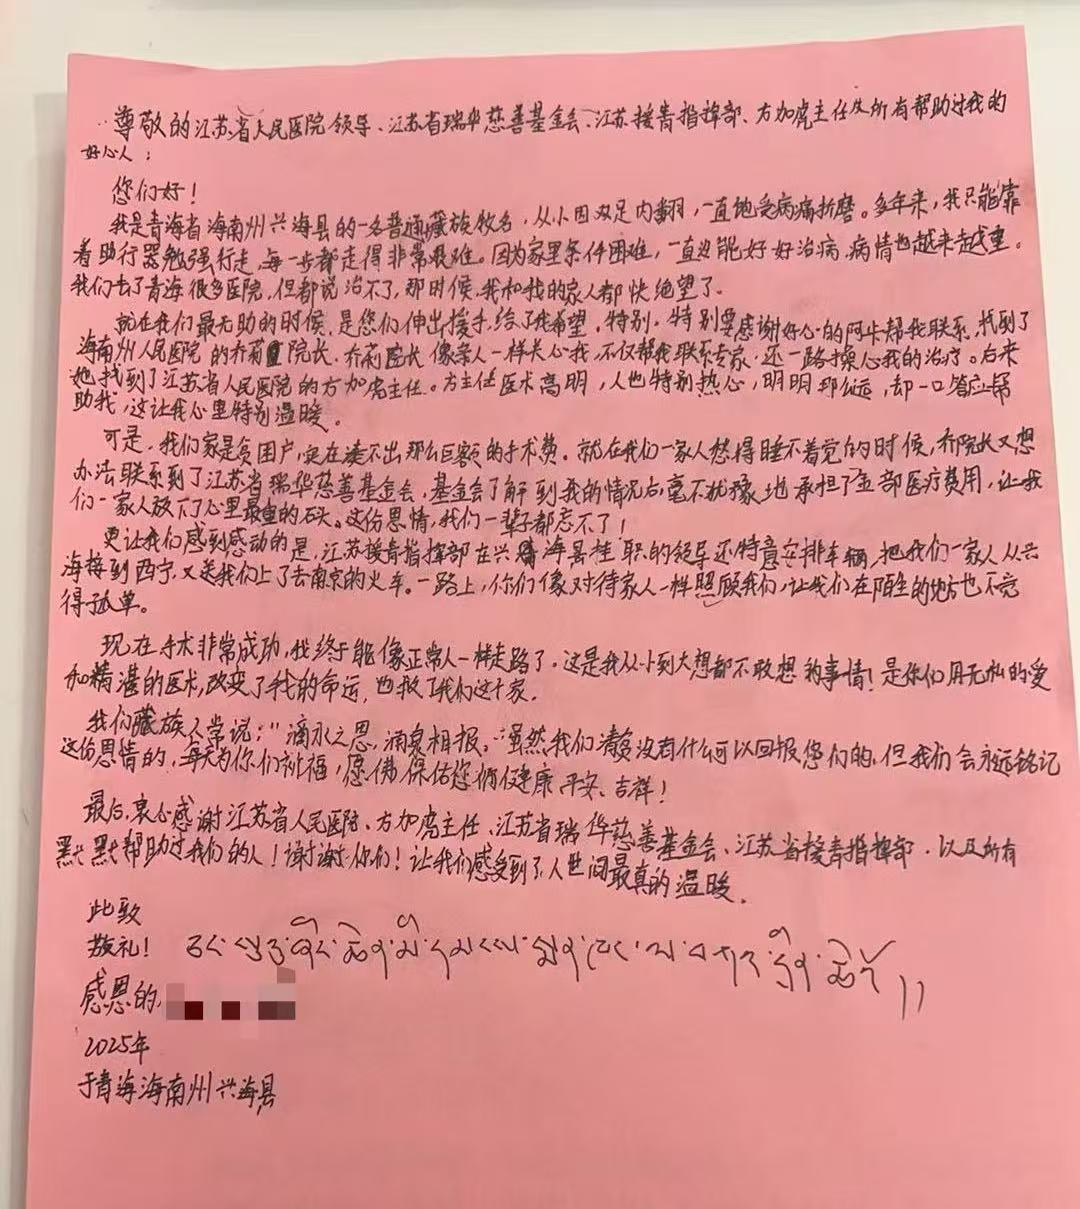 尊敬的江苏省人民医院领导、江苏省瑞华慈善基金会、江苏援青指挥部、方加虎主任及所有帮助过我的
好心人：
您们好！
我是青海省海南州兴海县的一名普通藏族牧名，从小因双足内翻，一直地受病痛折磨。多年来，我只能靠
着助行器勉强行走，每一步都走得非常艰难。因为家里条件困难，一直没能好好治病，病情也越来越重。
我们去了青海很多医院，但都说治不了，那时候，我和我的家人都快绝望了。
就在我们最无助的时候，是您们伸出援手，给了我希望，特别，特别要感谢好心的阿卡帮我联系，找到了
海南州人民医院的乔莉院长，乔莉院长像亲人一样关心我，不仅帮我联系专家，还一路操心我的治疗。后来
她找到了江苏省人民医院的方加虎主任。方主任医术高明，人也特别热心，明明那么远，却一口答应帮
助我，这让我心里特别温暖。
可是，我们家是贫困户，实在凑不出那么巨额的手术费。就在我们一家人愁得睡不着觉的时候，乔院长又想
办法联系到了江苏省瑞华慈善基金会，基金会了解到我的情况后，毫不犹豫地承担了全部医疗费用，让我
们一家人放下了心里最重的石头。这份恩情，我们一辈子都忘不了！
更让我们感到感动的是，江苏援青指挥部在兴海县挂职的领导还特意安排车辆，把我们一家人从兴
海接到西宁，又送我们上了去南京的火车。一路上，你们像对待家人一样照顾我们，让我们在陌生的地方也不觉
得孤单。
现在手术非常成功，我终于能像正常人一样走路了，这是我从小到大想都不敢想的事情！是你们用无私的爱
加精湛的医术，改变了我的命运，也救了我们这个家。
我们藏族人常说："滴水之恩，涌泉相报。"虽然我们清贫没有什么可以回报您们的，但我们会永远铭记
这份恩情的，每天为你们祈福，愿佛保佑您们健康、平安、吉祥！
最后，衷心感谢江苏省人民医院、方加虎主任、江苏省瑞华慈善基金会、江苏省援青指挥部，以及所有
默默帮助过我们的人！谢谢你们！让我们感受到了人世间最真的温暖。
此致
敬礼！
感恩的，
2025年
于青海海南州兴海县